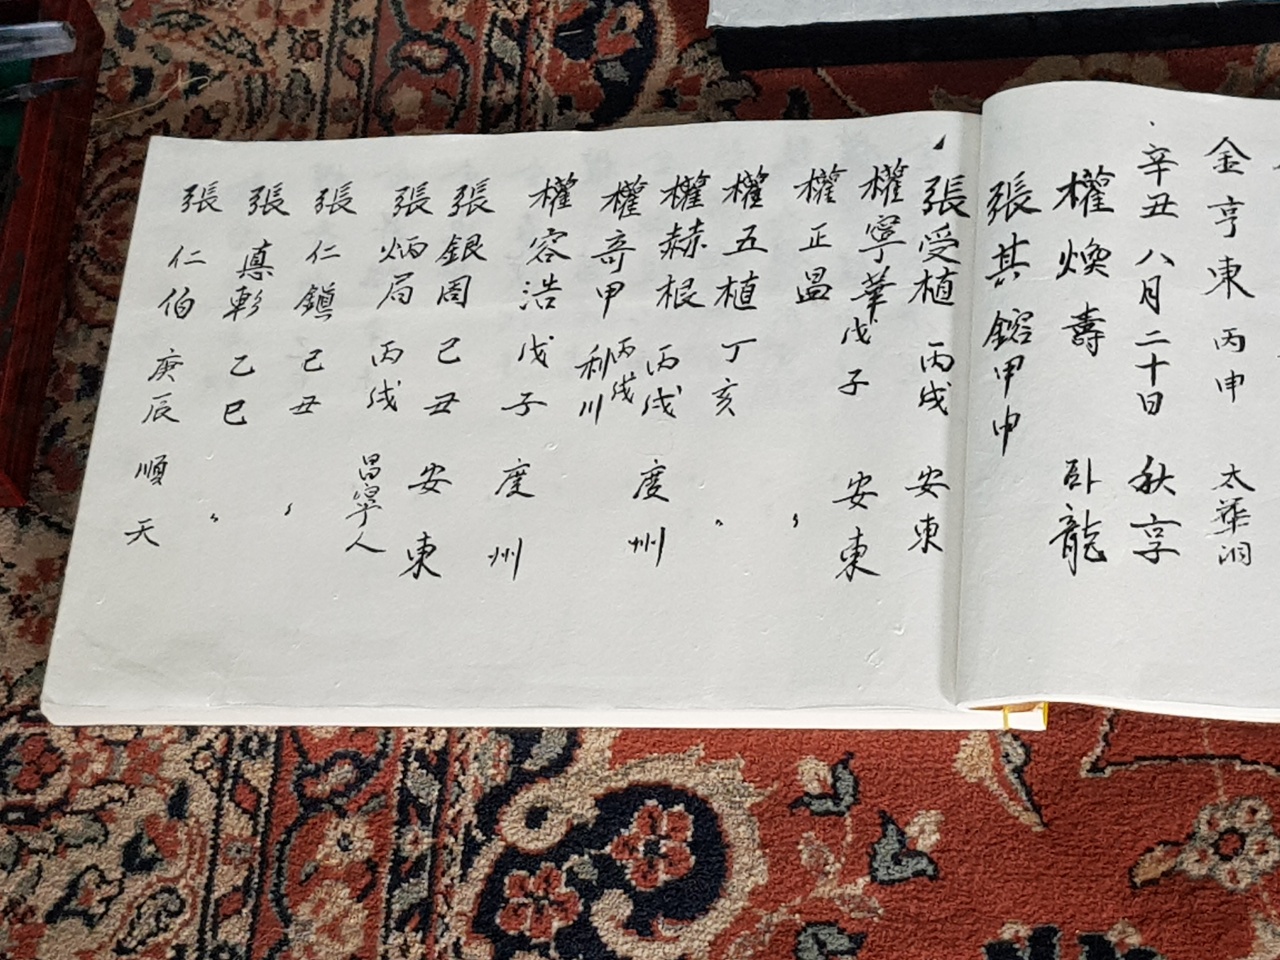 金亨東 丙申 太華洞
辛丑 八月二十日 秋享
權煥壽 臥龍
張其鎔 甲申
張受植 丙戌 安東
權寧華 戊子 安東
權正𥁕 〃
權五植 丁亥 〃
權赫根 丙戌 度州
權奇甲 丙戌 利川
權容浩 戊子 度州
張銀周 己丑 安東
張炳局 丙戌 昌寧人
張仁鎭 己丑 〃
張 彰 乙巳 〃
張仁伯 庚辰 順天